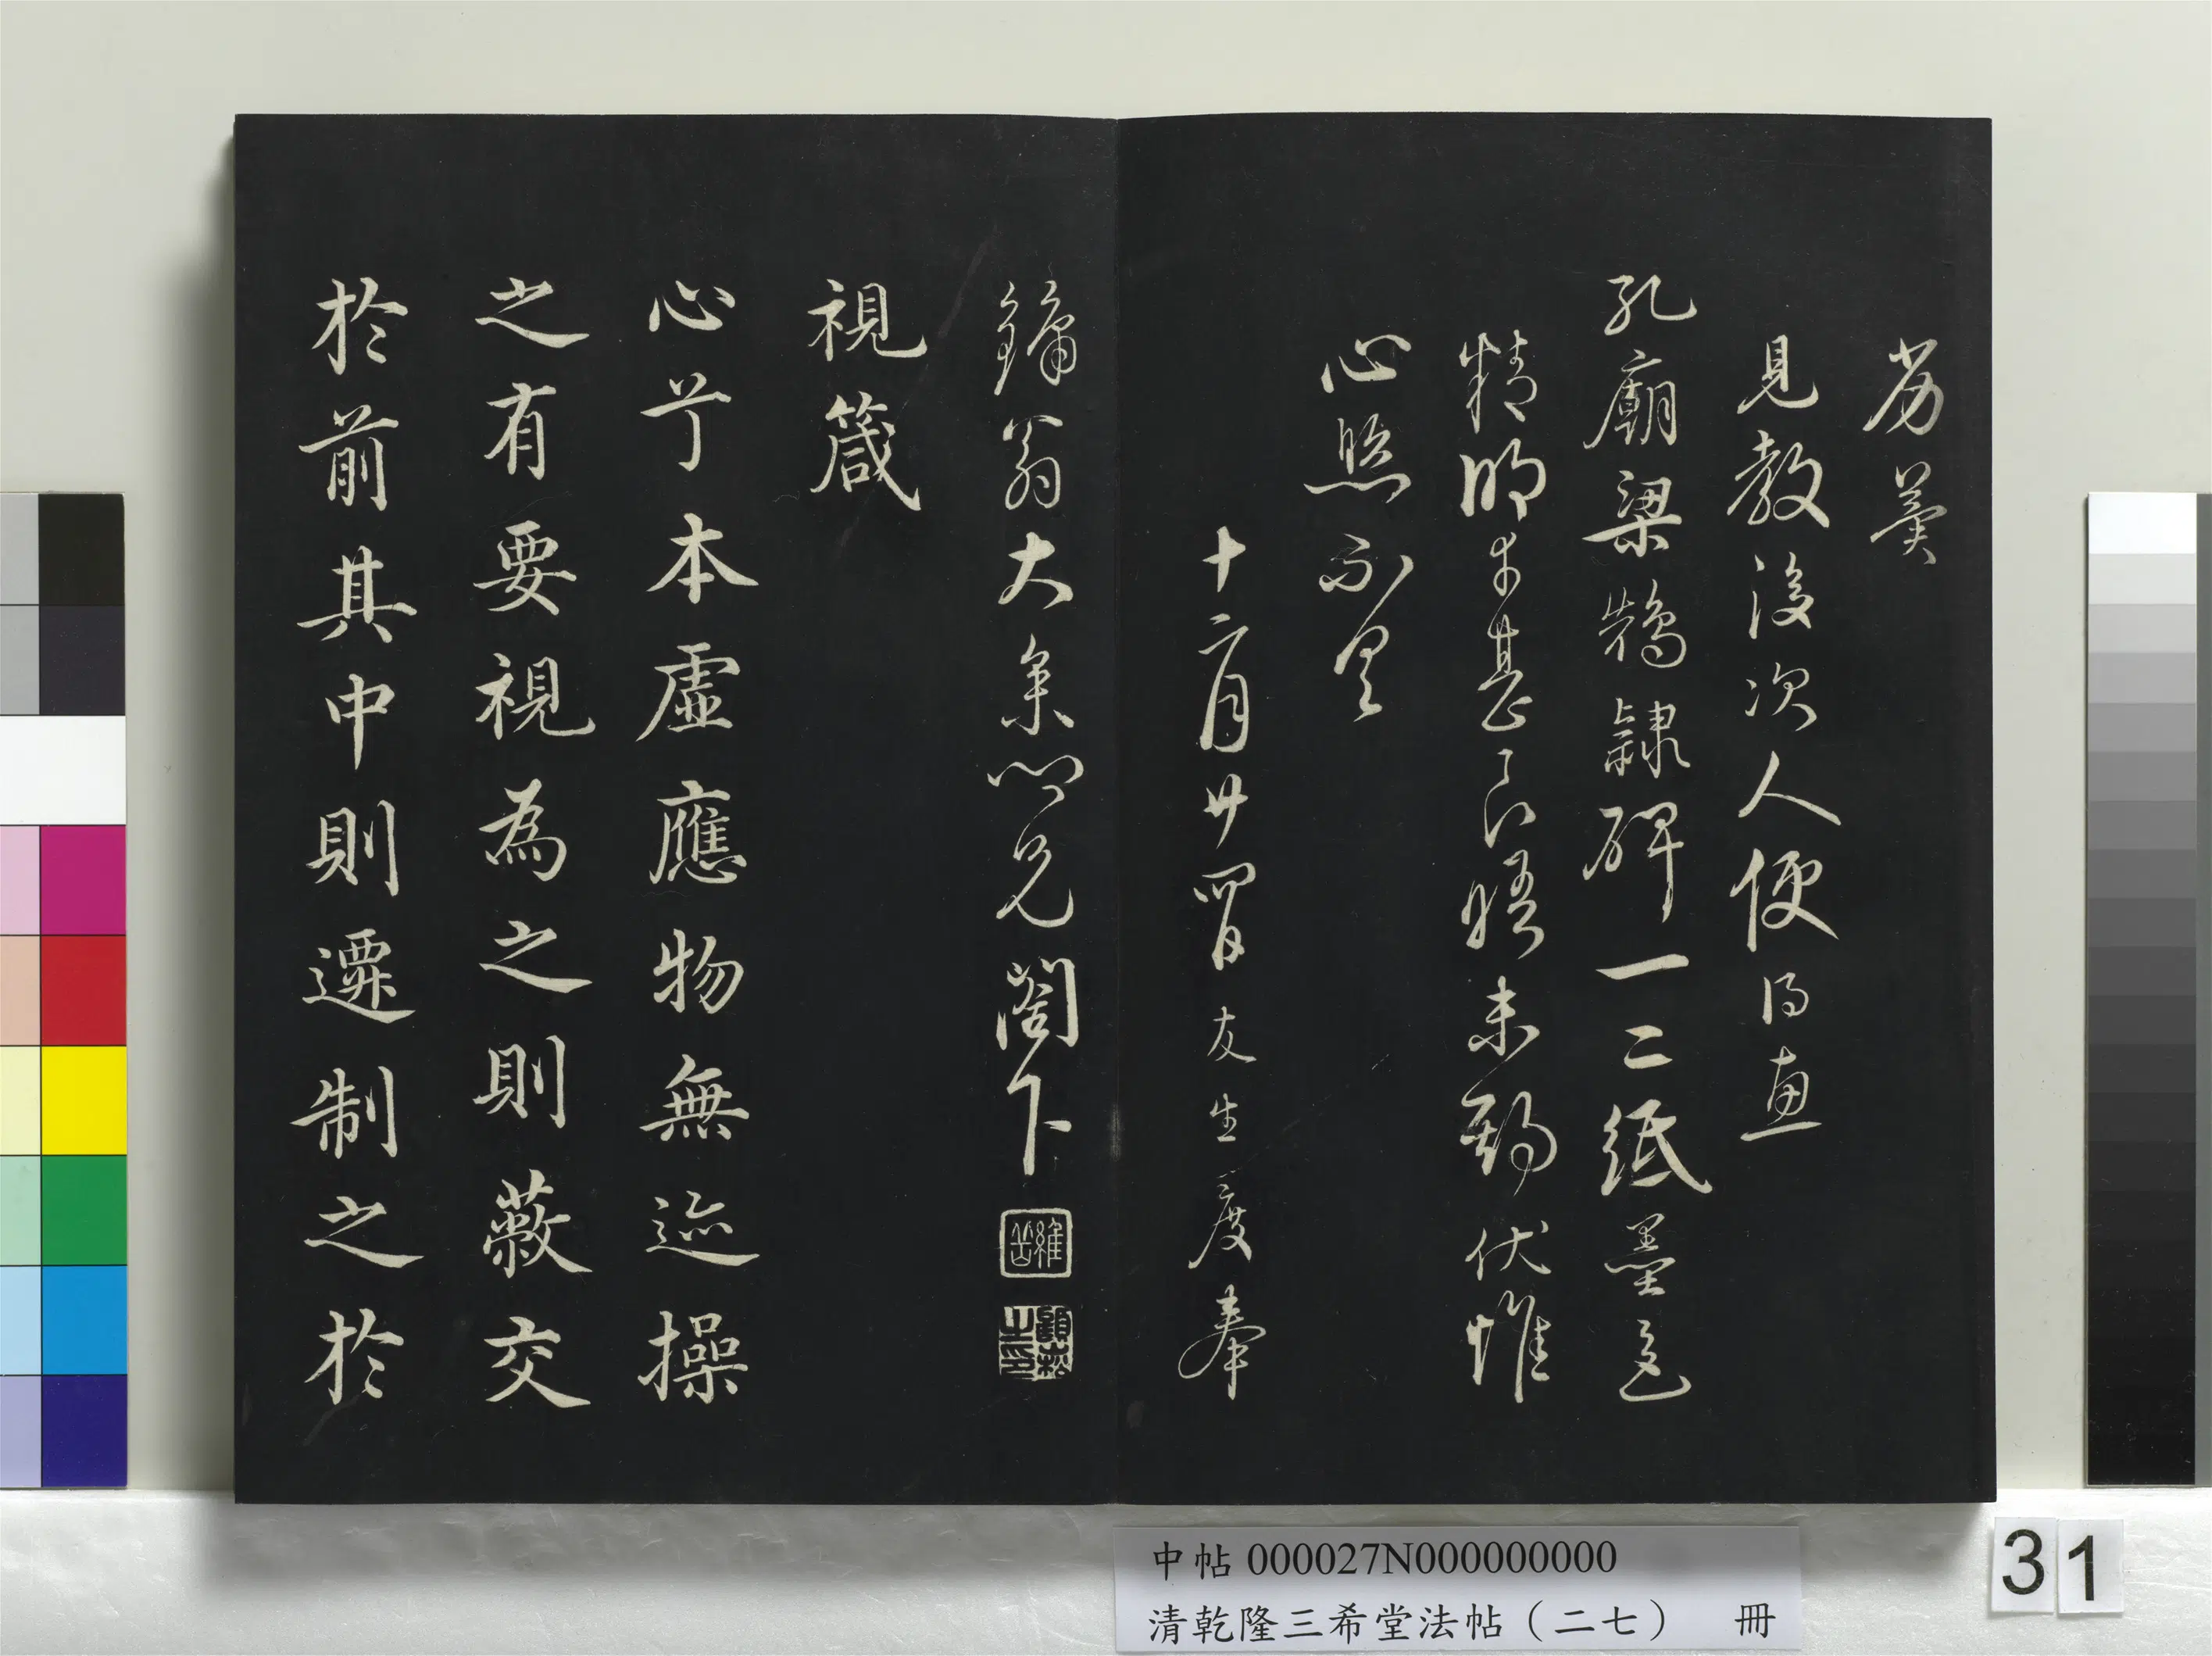 見教後次人便得惠
孔廟梁鵠隸碑一二紙墨色
精明幸甚良晤未期伏惟
心照不具
十二月廿四日友生度奉
鏞翁大參兄閣下
視箴
心兮本虛應物無迹操
之有要視為之則蔽交
於前其中則遷制之於
中帖 000027N000000000
清乾隆三希堂法帖（二七） 冊
31